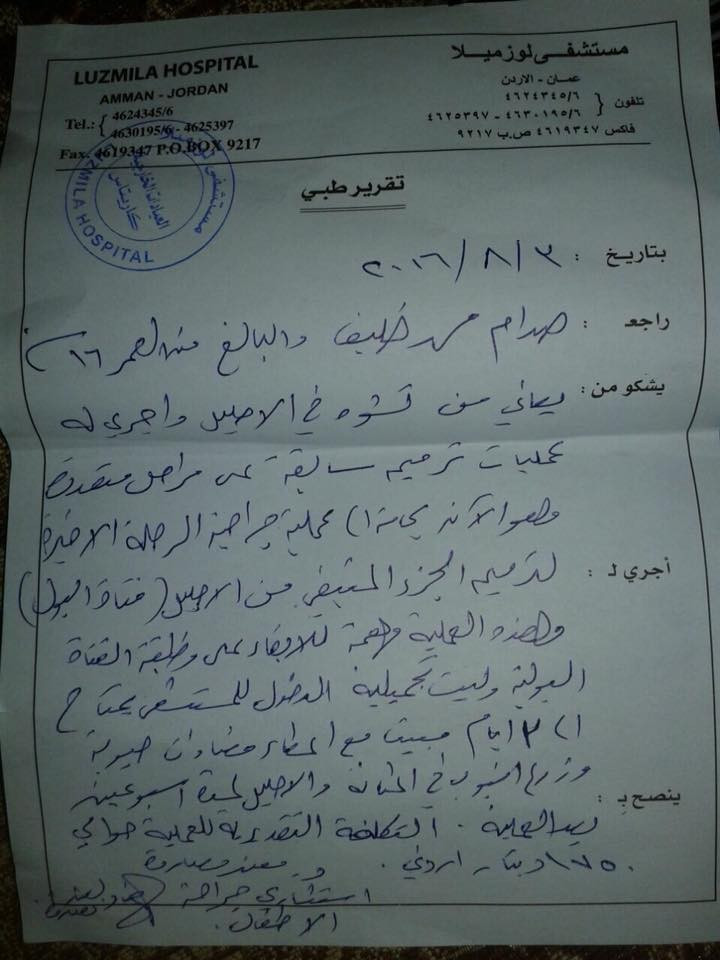 LUZMILA HOSPITAL
AMMAN - JORDAN
Tel.: { 4624345/6
4630195/6 - 4625397
Fax. 4619347 P.O.BOX 9217
مستشفى لوزميلا
عمان - الاردن
تلفون { ٤٦٢٤٣٤٥/٦
٤٦٣٠١٩٥/٦ - ٤٦٢٥٣٩٧
فاكس ٤٦١٩٣٤٧ ص.ب ٩٢١٧
مستشفى لوزميلا
العيادات الخارجية
LUZMILA HOSPITAL
تقرير طبي
بتاريخ : ٣/٨/٢٠١٦
راجعـ : صدام خليف والبالغ من العمر ١٦
يشكو من : يعاني من تشوه في الاحليل واجري له
عمليات ترميم سابقة على مراحل متعددة
وهو الآن بحاجة ا) عملية جراحية المرحلة الاخيرة
أجري لـ : لترميم الجزء المتبقي من الاحليل (قناة البول)
وهذه العملية مهمة للابقاء على وظيفة القناة
البولية وليست تجميلية الدخول للمستشفى يحتاج
ا) ٣ ايام مبيت مع اعطاء مضادات حيوية
وزرع انبوب في المثانة والاحليل لمدة اسبوعين
ينصح بـ : بعد العملية . التكلفة التقديرية للعملية حوالي
١٧٥٠ دينار اردني .
استشاري جراحة
الاطفال .